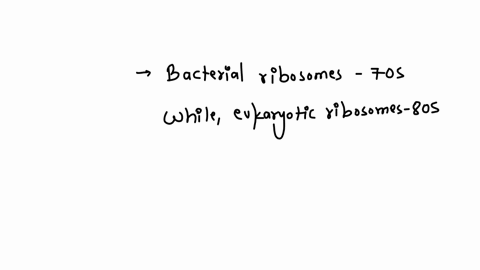 → Bacterial ribosomes - 70S
While, eukaryotic ribosomes-80S